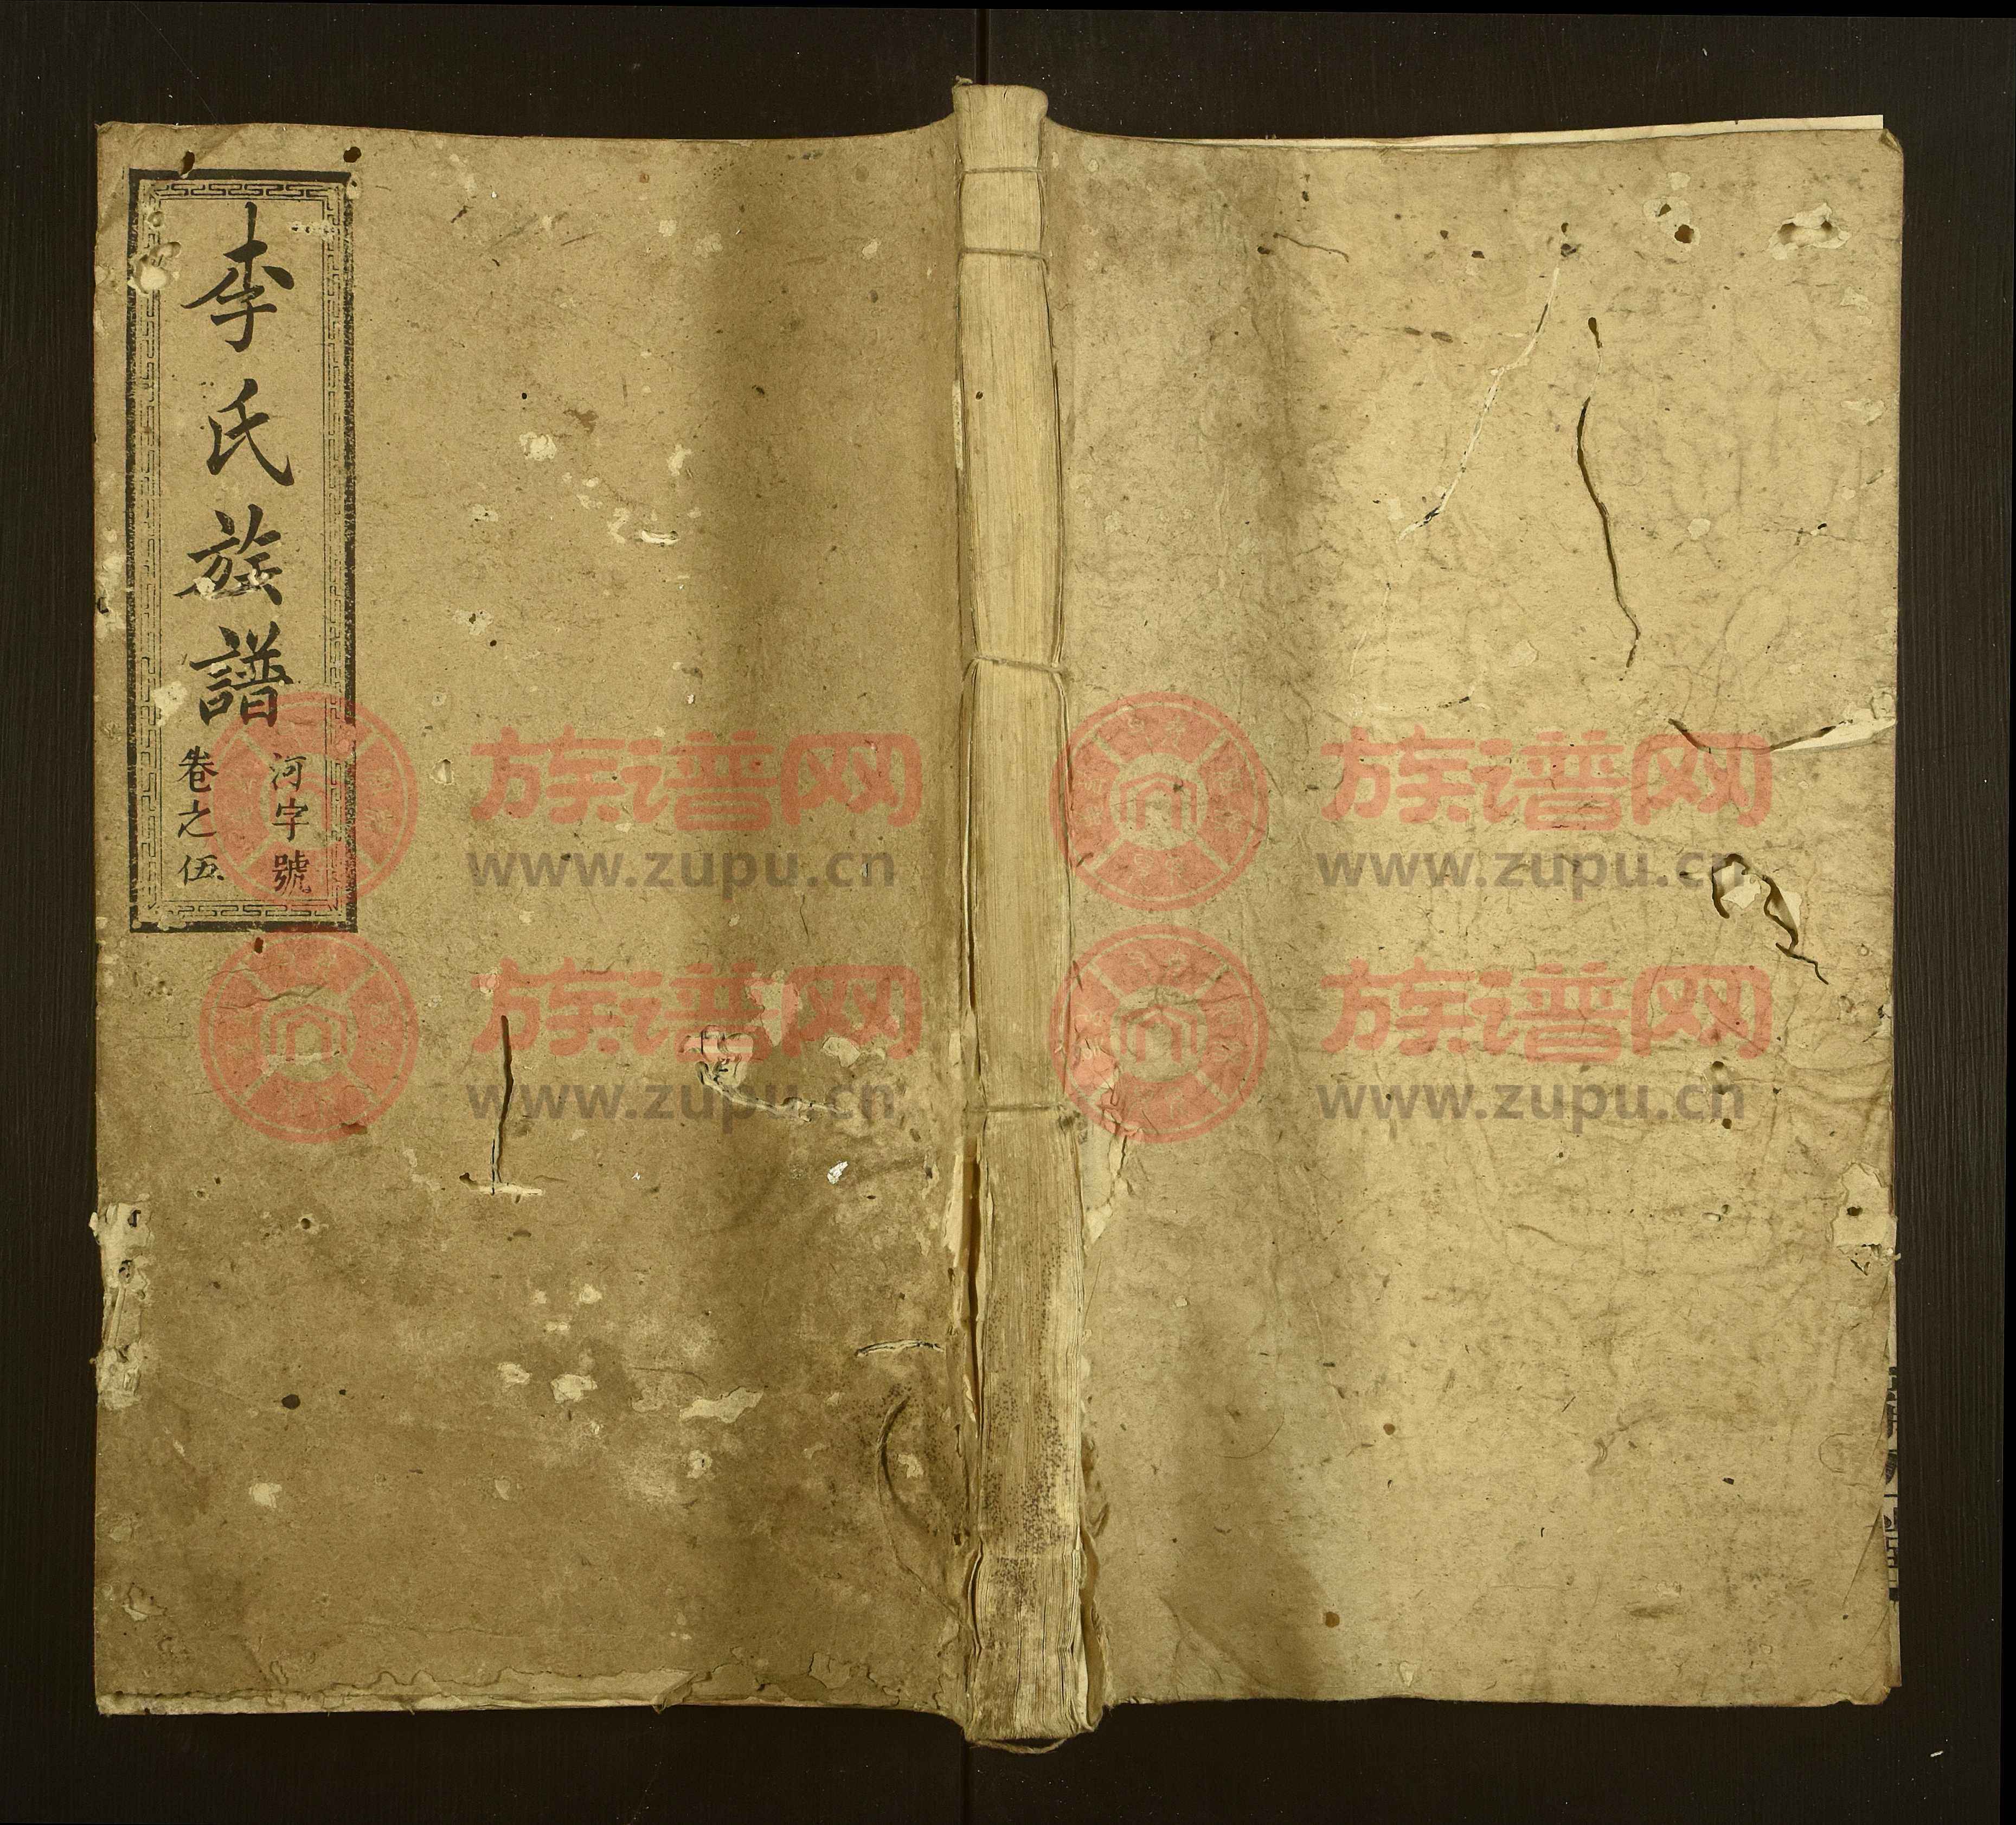 李氏族譜
河字號
卷之伍
族谱网
www.zupu.cn
族谱网
www.zupu.cn
族谱网
www.zupu.cn
族谱网
www.zupu.cn